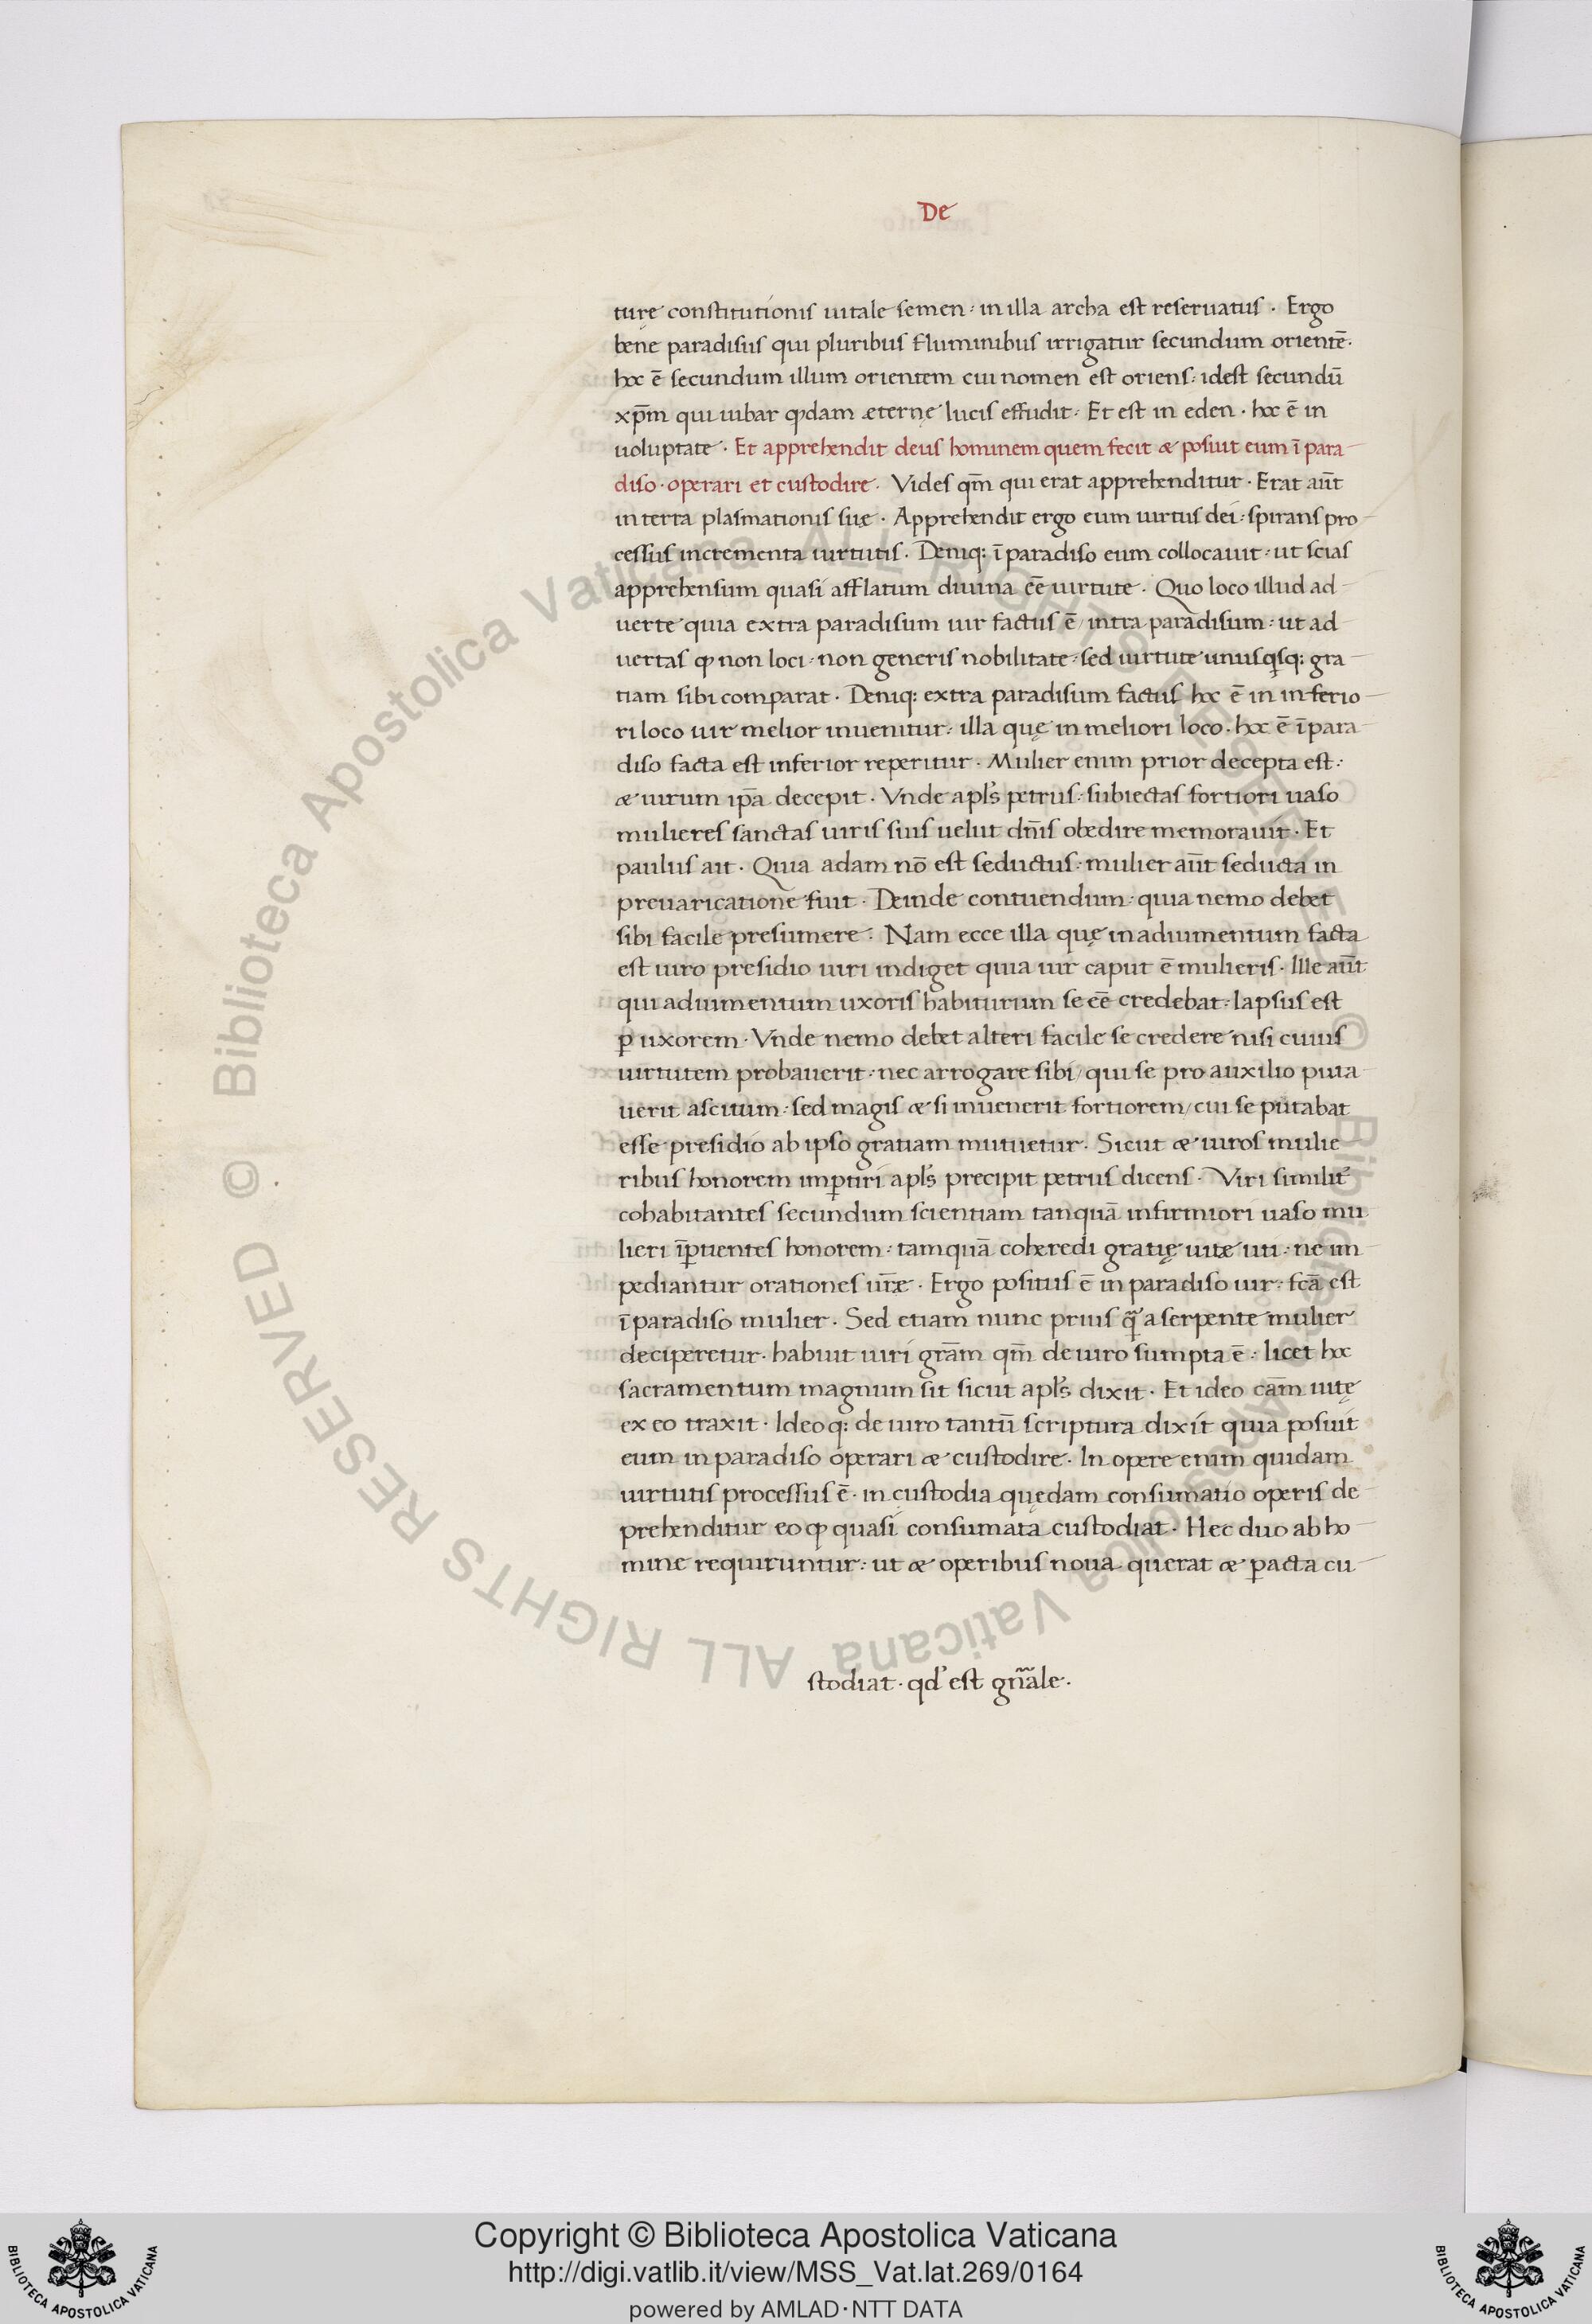 De
turę constitutionis uitale semen: in illa archa est reseruatus. Ergo
bene paradisus qui pluribus fluminibus irrigatur secundum orientē.
hoc ē secundum illum orientem cui nomen est oriens: idest secundū
xp̄m qui iubar qđdam æternę lucis effudit. Et est in eden. hoc ē in
uoluptate. Et apprehendit deus hominem quem fecit æ posuit eum ī para
diso. operari et custodire. Vides qm̄ qui erat apprehenditur. Erat aūt
in terra plasmationis suę. Apprehendit ergo eum uirtus dei: spirans pro
cessus incrementa uirtutis. Deniq: ī paradiso eum collocauit: ut scias
apprehensum quasi afflatum diuina eē uirtute. Quo loco illud ad
uerte quia extra paradisum uir factus ē / intra paradisum: ut ad
uertas qđ non loci: non generis nobilitate: sed uirtute unusqsq: gra
tiam sibi comparat. Deniq: extra paradisum factus hoc ē in inferio
ri loco uir melior inuenitur: illa quę in meliori loco. hoc ē ī para
diso facta est inferior reperitur. Mulier enim prior decepta est:
æ uirum ip̄a decepit. Vnde apl's petrus: subiectas fortiori uaso
mulieres sanctas uiris suis uelut dn̄is obedire memorauit. Et
paulus ait. Quia adam nō est seductus: mulier aūt seducta in
preuaricatione fuit. Deinde contuendum: quia nemo debet
sibi facile presumere. Nam ecce illa quę in adiumentum facta
est uiro presidio uiri indiget quia uir caput ē mulieris. Ille aūt
qui adiumentum uxoris habiturum se eē credebat: lapsus est
p̱ uxorem. Vnde nemo debet alteri facile se credere nisi cuius
uirtutem probauerit: nec arrogare sibi / qui se pro auxilio puta
uerit ascitum: sed magis æ si inuenerit fortiorem / cui se putabat
esse presidio ab ipso gratiam mutuetur. Sicut æ uiros mulie
ribus honorem imp̱tiri apl's precipit petrus dicens. Viri similit'
cohabitantes secundum scientiam tanquā infirmiori uaso mu
lieri īp̱tientes honorem: tamquā coheredi gratię uitæ uti: ne im
pediantur orationes ur̄æ. Ergo positus ē in paradiso uir: fcā est
ī paradiso mulier. Sed etiam nunc prius q̃ a serpente mulier
deciperetur. habuit uiri gr̄am qm̄ de uiro sumpta ē: licet hoc
sacramentum magnum sit sicut apl's dixit. Et ideo cām uitę
ex eo traxit. Ideoq: de uiro tantū scriptura dixit quia posuit
eum in paradiso operari æ custodire. In opere enim quidam
uirtutis processus ē. in custodia quędam consumatio operis de
prehenditur eo qđ quasi consumata custodiat. Hec duo ab ho
mine requiruntur: ut æ operibus noua querat æ p̱acta cu
stodiat. qd' est gn̄āle.
Biblioteca Apostolica Vaticana ALL RIGHTS RESERVED © Biblioteca Apostolica Vaticana ALL RIGHTS RESERVED ©
Copyright © Biblioteca Apostolica Vaticana
http://digi.vatlib.it/view/MSS_Vat.lat.269/0164
powered by AMLAD·NTT DATA
BIBLIOTECA APOSTOLICA VATICANA
BIBLIOTECA APOSTOLICA VATICANA